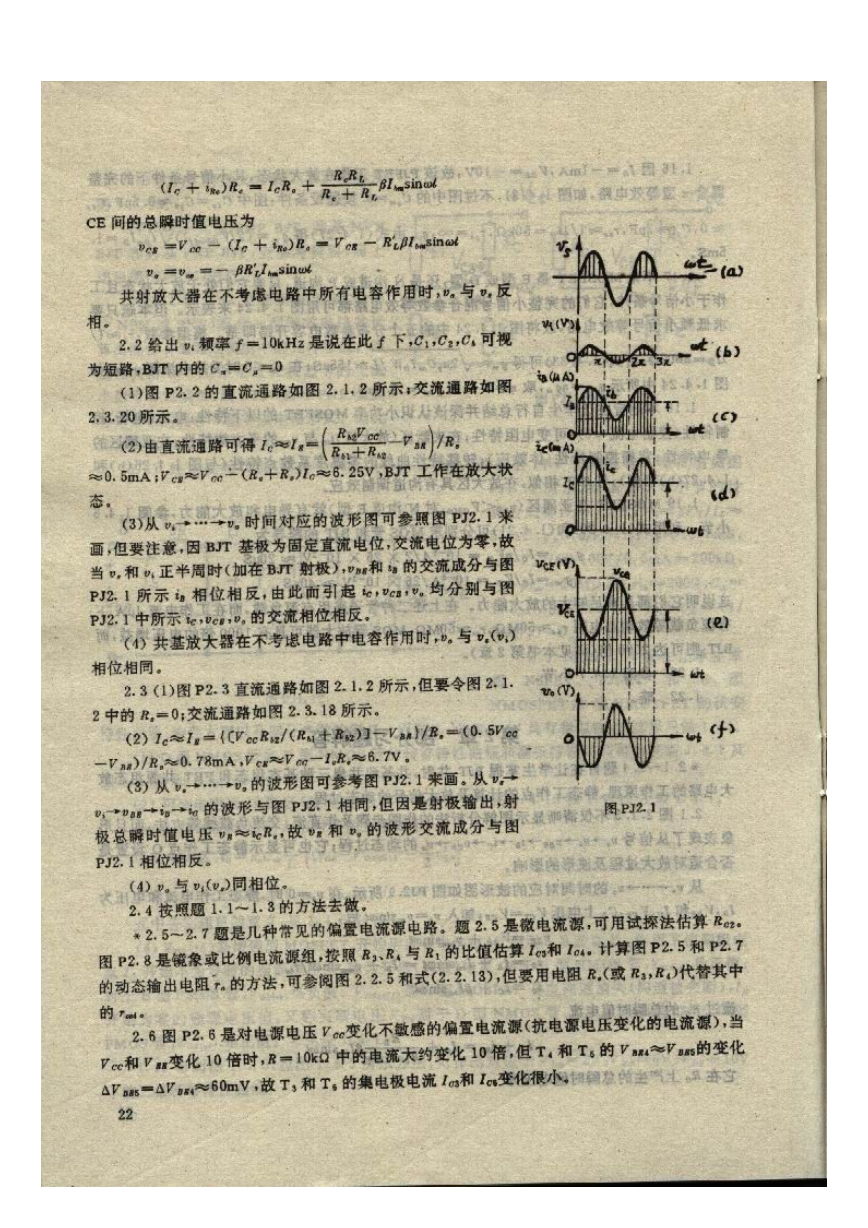 (I_C + i_Rc)R_c = I_C R_c + R_c R_L / (R_c + R_L) βI_bm sinωt
CE 间的总瞬时值电压为
v_CE = V_CC − (I_C + i_Rc)R_c = V_CE − R′_L βI_bm sinωt
v_o = v_ce = − βR′_L I_bm sinωt
共射放大器在不考虑电路中所有电容作用时,v_o 与 v_s 反
相。
2.2 给出 v_i 频率 f=10kHz 是说在此 f 下,C_1,C_2,C_b 可视
为短路,BJT 内的 C_π=C_μ=0
(1)图 P2.2 的直流通路如图 2.1.2 所示;交流通路如图
2.3.20 所示。
(2)由直流通路可得 I_C≈I_E=(R_b2 V_CC / (R_b1+R_b2) − V_BE)/R_e
≈0.5mA;V_CE≈V_CC−(R_c+R_e)I_C≈6.25V,BJT 工作在放大状
态。
(3)从 v_s→…→v_o 时间对应的波形图可参照图 PJ2.1 来
画,但要注意,因 BJT 基极为固定直流电位,交流电位为零,故
当 v_s 和 v_i 正半周时(加在 BJT 射极),v_BE 和 i_B 的交流成分与图
PJ2.1 所示 i_B 相位相反,由此而引起 i_C,v_CE,v_o 均分别与图
PJ2.1 中所示 i_C,v_CE,v_o 的交流相位相反。
(4) 共基放大器在不考虑电路中电容作用时,v_o 与 v_s(v_i)
相位相同。
2.3 (1)图P2.3 直流通路如图 2.1.2 所示,但要令图 2.1.
2 中的 R_c=0;交流通路如图 2.3.18 所示。
(2) I_C≈I_E={[V_CC R_b2/(R_b1+R_b2)]−V_BE}/R_e=(0.5V_CC
−V_BE)/R_e≈0.78mA,V_CE≈V_CC−I_e R_e≈6.7V。
(3) 从 v_s→…→v_o 的波形图可参考图 PJ2.1 来画。从 v_s→
v_i→v_BE→i_B→i_C 的波形与图 PJ2.1 相同,但因是射极输出,射
极总瞬时值电压 v_E≈i_C R_e,故 v_E 和 v_o 的波形交流成分与图
PJ2.1 相位相反。
(4) v_o 与 v_i(v_s)同相位。
2.4 按照题 1.1~1.3 的方法去做。
*2.5~2.7 题是几种常见的偏置电流源电路。题 2.5 是微电流源,可用试探法估算 R_e2。
图 P2.8 是镜象或比例电流源组,按照 R_3、R_4 与 R_1 的比值估算 I_C3 和 I_C4。计算图 P2.5 和 P2.7
的动态输出电阻 r_o 的方法,可参阅图 2.2.5 和式(2.2.13),但要用电阻 R_e(或 R_3,R_4)代替其中
的
2.6 图 P2.6 是对电源电压 V_CC 变化不敏感的偏置电流源(抗电源电压变化的电流源),当
V_CC 和 V_EE 变化 10 倍时,R=10kΩ 中的电流大约变化 10 倍,但 T_4 和 T_5 的 V_BE4≈V_BE5 的变化
ΔV_BE5=ΔV_BE4≈60mV,故 T_3 和 T_6 的集电极电流 I_C3 和 I_C6 变化很小。
22
V_s
ωt
(a)
v_i(V)
0
π 2π 3π
ωt
(b)
i_B(μA)
I_B
i_b
0
ωt
(c)
i_C(mA)
I_C
i_c
0
ωt
(d)
v_CE(V)
V_CE
v_ce
0
ωt
(e)
v_o(V)
0
ωt
(f)
图 PJ2.1